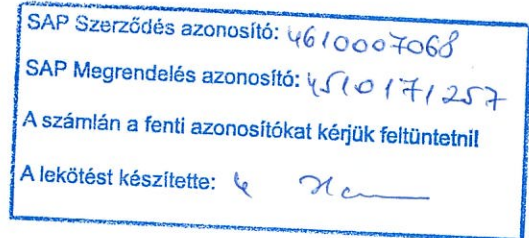 SAP Szerződés azonosító: 4610007068
SAP Megrendelés azonosító: 4510171257
A számlán a fenti azonosítókat kérjük feltüntetni!
A lekötést készítette: